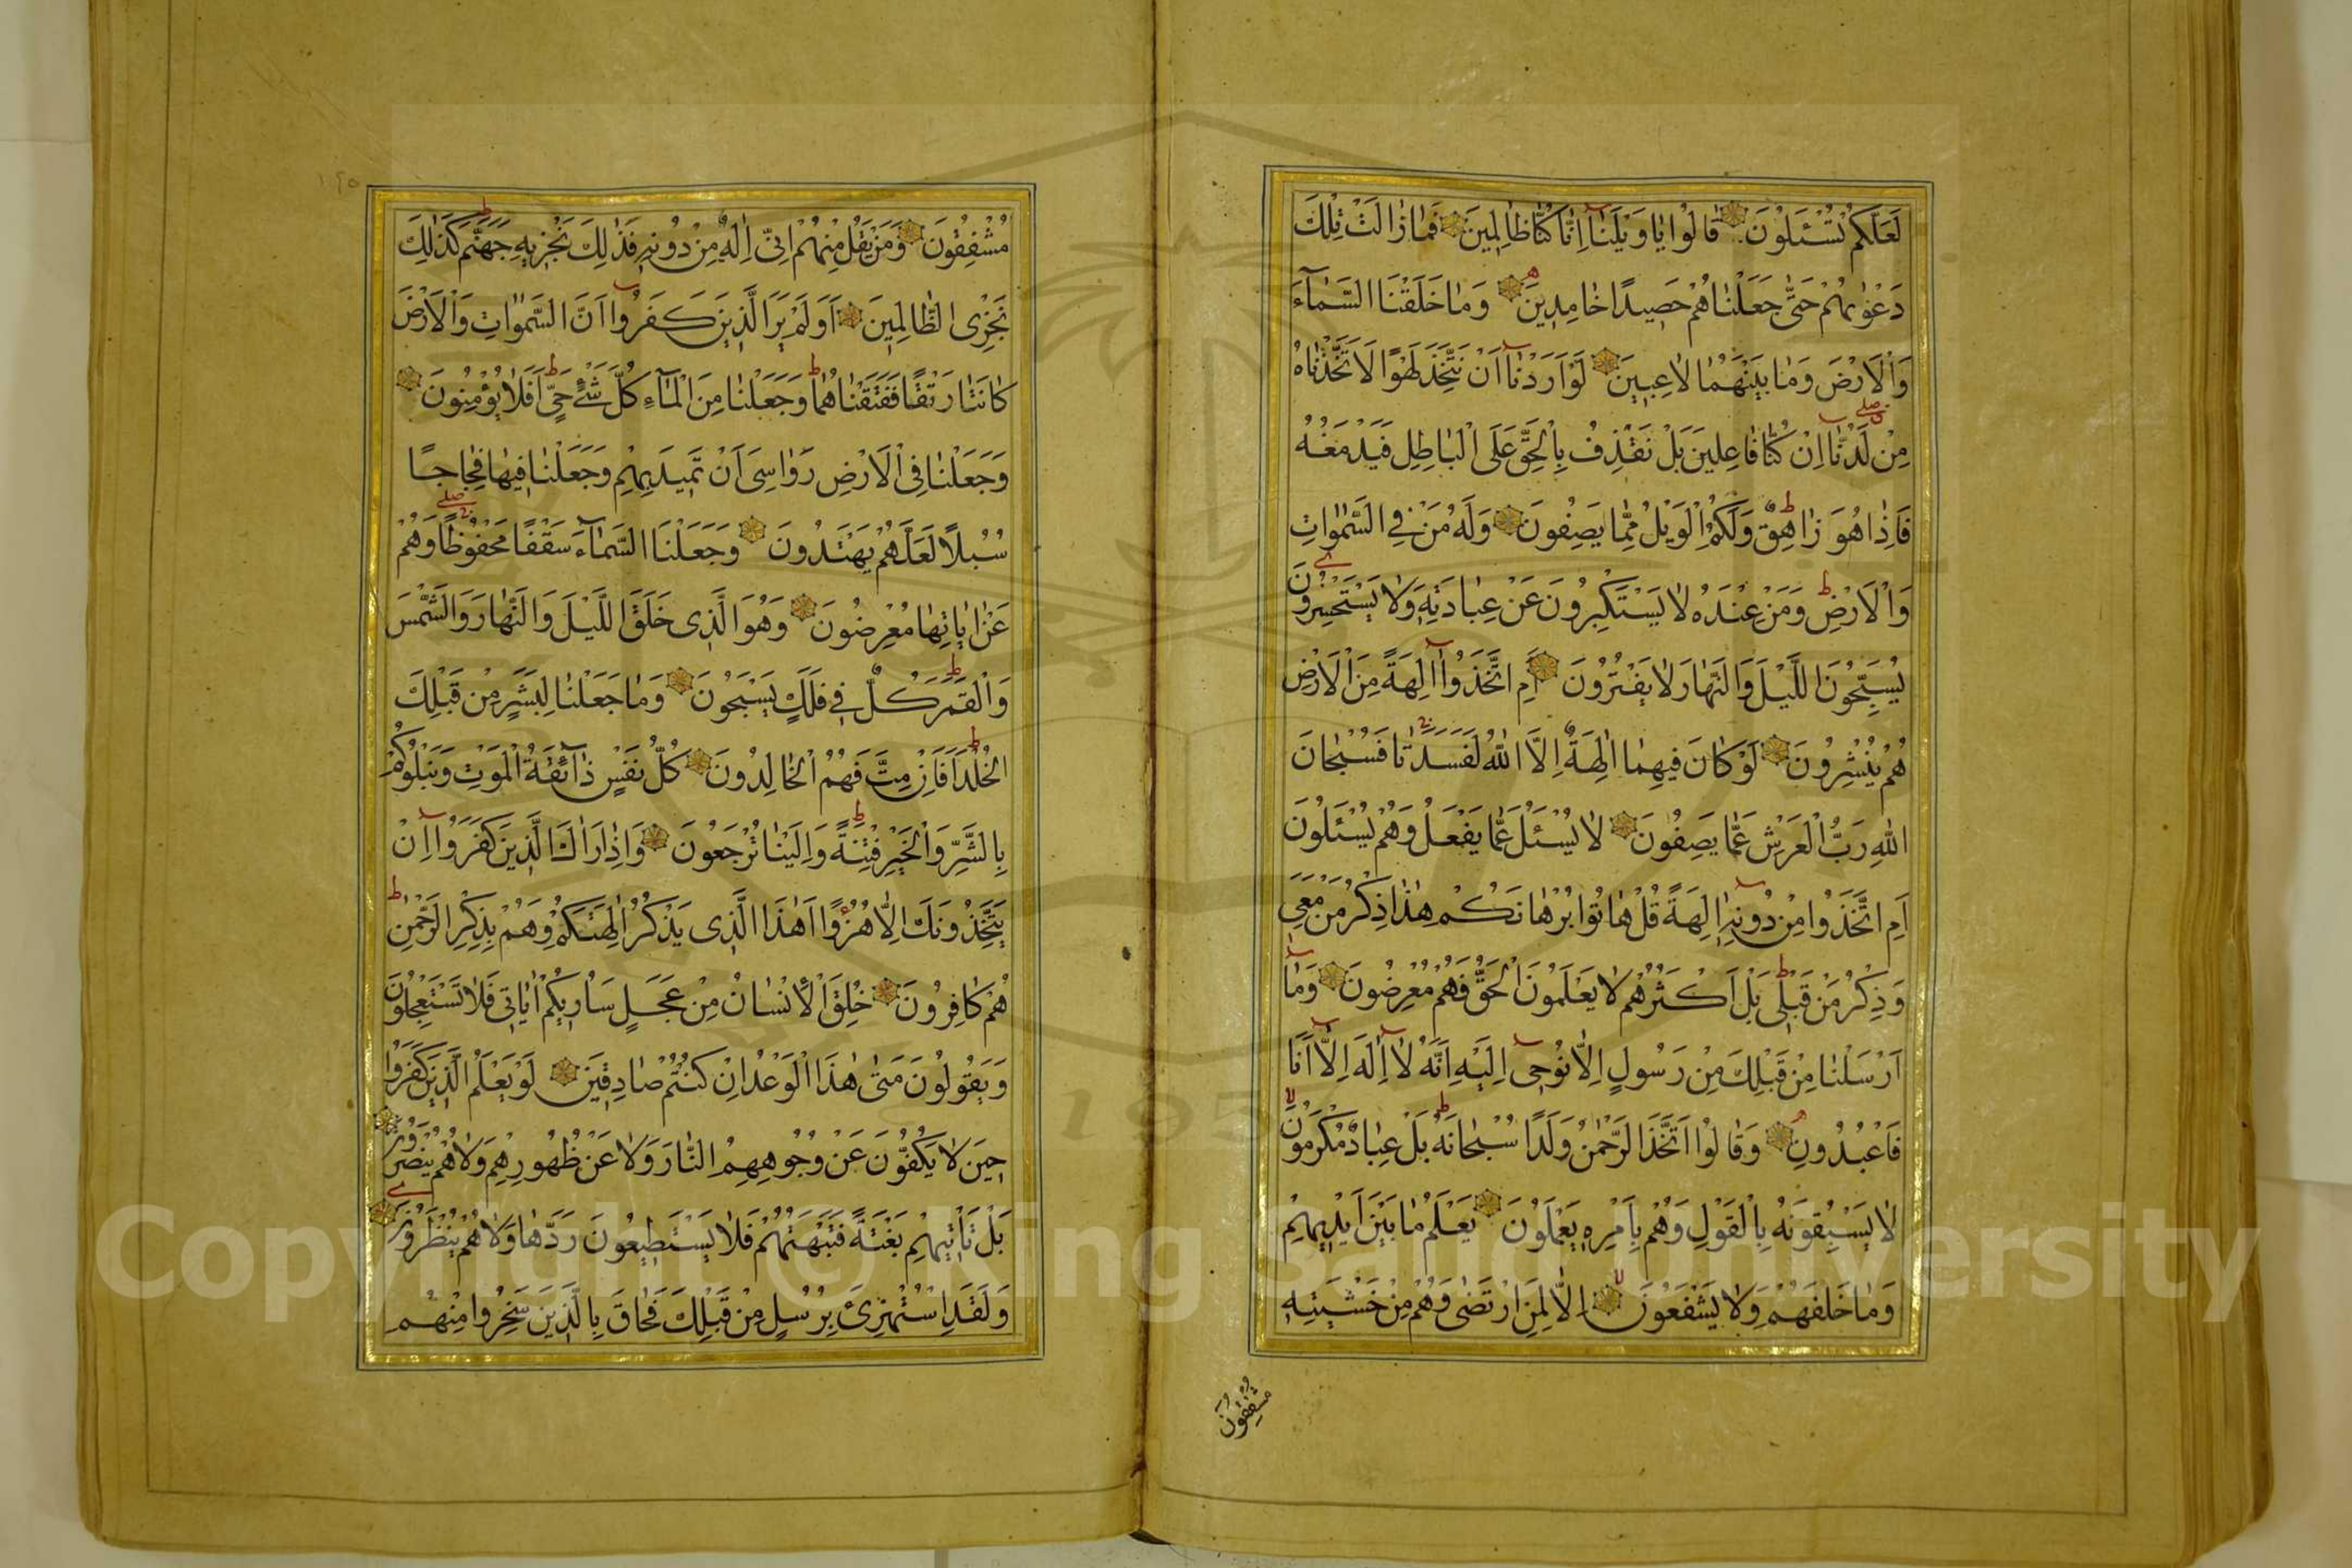 لَعَلَّكُمْ تُسْئَلُونَ قَالُوا يَا وَيْلَنَا إِنَّا كُنَّا ظَالِمِينَ فَمَا زَالَتْ تِلْكَ
دَعْوٰيهُمْ حَتّٰى جَعَلْنَاهُمْ حَصِيدًا خَامِدِينَ وَمَا خَلَقْنَا السَّمَآءَ
وَالْاَرْضَ وَمَا بَيْنَهُمَا لَاعِبِينَ لَوْ اَرَدْنَا اَنْ نَتَّخِذَ لَهْوًا لَاتَّخَذْنَاهُ
مِنْ لَدُنَّا اِنْ كُنَّا فَاعِلِينَ بَلْ نَقْذِفُ بِالْحَقِّ عَلَى الْبَاطِلِ فَيَدْمَغُهُ
فَاِذَا هُوَ زَاهِقٌ وَلَكُمُ الْوَيْلُ مِمَّا يَصِفُونَ وَلَهُ مَنْ فِي السَّمٰوَاتِ
وَالْاَرْضِ وَمَنْ عِنْدَهُ لَا يَسْتَكْبِرُونَ عَنْ عِبَادَتِهِ وَلَا يَسْتَحْسِرُونَ
يُسَبِّحُونَ اللَّيْلَ وَالنَّهَارَ لَا يَفْتُرُونَ اَمِ اتَّخَذُوا اٰلِهَةً مِنَ الْاَرْضِ
هُمْ يُنْشِرُونَ لَوْ كَانَ فِيهِمَا اٰلِهَةٌ اِلَّا اللّٰهُ لَفَسَدَتَا فَسُبْحَانَ
اللّٰهِ رَبِّ الْعَرْشِ عَمَّا يَصِفُونَ لَا يُسْئَلُ عَمَّا يَفْعَلُ وَهُمْ يُسْئَلُونَ
اَمِ اتَّخَذُوا مِنْ دُونِهِ اٰلِهَةً قُلْ هَاتُوا بُرْهَانَكُمْ هٰذَا ذِكْرُ مَنْ مَعِيَ
وَذِكْرُ مَنْ قَبْلِي بَلْ اَكْثَرُهُمْ لَا يَعْلَمُونَ الْحَقَّ فَهُمْ مُعْرِضُونَ وَمَا
اَرْسَلْنَا مِنْ قَبْلِكَ مِنْ رَسُولٍ اِلَّا نُوحِي اِلَيْهِ اَنَّهُ لَا اِلٰهَ اِلَّا اَنَا
فَاعْبُدُونِ وَقَالُوا اتَّخَذَ الرَّحْمٰنُ وَلَدًا سُبْحَانَهُ بَلْ عِبَادٌ مُكْرَمُونَ
لَا يَسْبِقُونَهُ بِالْقَوْلِ وَهُمْ بِاَمْرِهِ يَعْمَلُونَ يَعْلَمُ مَا بَيْنَ اَيْدِيهِمْ
وَمَا خَلْفَهُمْ وَلَا يَشْفَعُونَ اِلَّا لِمَنِ ارْتَضٰى وَهُمْ مِنْ خَشْيَتِهِ
مُشْفِقُونَ
مُشْفِقُونَ وَمَنْ يَقُلْ مِنْهُمْ اِنِّي اِلٰهٌ مِنْ دُونِهِ فَذٰلِكَ نَجْزِيهِ جَهَنَّمَ كَذٰلِكَ
نَجْزِي الظَّالِمِينَ اَوَلَمْ يَرَ الَّذِينَ كَفَرُوا اَنَّ السَّمٰوَاتِ وَالْاَرْضَ
كَانَتَا رَتْقًا فَفَتَقْنَاهُمَا وَجَعَلْنَا مِنَ الْمَآءِ كُلَّ شَيْءٍ حَيٍّ اَفَلَا يُؤْمِنُونَ
وَجَعَلْنَا فِي الْاَرْضِ رَوَاسِيَ اَنْ تَمِيدَ بِهِمْ وَجَعَلْنَا فِيهَا فِجَاجًا
سُبُلًا لَعَلَّهُمْ يَهْتَدُونَ وَجَعَلْنَا السَّمَآءَ سَقْفًا مَحْفُوظًا وَهُمْ
عَنْ اٰيَاتِهَا مُعْرِضُونَ وَهُوَ الَّذِي خَلَقَ اللَّيْلَ وَالنَّهَارَ وَالشَّمْسَ
وَالْقَمَرَ كُلٌّ فِي فَلَكٍ يَسْبَحُونَ وَمَا جَعَلْنَا لِبَشَرٍ مِنْ قَبْلِكَ
الْخُلْدَ اَفَاِنْ مِتَّ فَهُمُ الْخَالِدُونَ كُلُّ نَفْسٍ ذَآئِقَةُ الْمَوْتِ وَنَبْلُوكُمْ
بِالشَّرِّ وَالْخَيْرِ فِتْنَةً وَاِلَيْنَا تُرْجَعُونَ وَاِذَا رَاٰكَ الَّذِينَ كَفَرُوا اِنْ
يَتَّخِذُونَكَ اِلَّا هُزُوًا اَهٰذَا الَّذِي يَذْكُرُ اٰلِهَتَكُمْ وَهُمْ بِذِكْرِ الرَّحْمٰنِ
هُمْ كَافِرُونَ خُلِقَ الْاِنْسَانُ مِنْ عَجَلٍ سَاُرِيكُمْ اٰيَاتِي فَلَا تَسْتَعْجِلُونِ
وَيَقُولُونَ مَتٰى هٰذَا الْوَعْدُ اِنْ كُنْتُمْ صَادِقِينَ لَوْ يَعْلَمُ الَّذِينَ كَفَرُوا
حِينَ لَا يَكُفُّونَ عَنْ وُجُوهِهِمُ النَّارَ وَلَا عَنْ ظُهُورِهِمْ وَلَا هُمْ يُنْصَرُونَ
بَلْ تَاْتِيهِمْ بَغْتَةً فَتَبْهَتُهُمْ فَلَا يَسْتَطِيعُونَ رَدَّهَا وَلَا هُمْ يُنْظَرُونَ
وَلَقَدِ اسْتُهْزِئَ بِرُسُلٍ مِنْ قَبْلِكَ فَحَاقَ بِالَّذِينَ سَخِرُوا مِنْهُمْ
Copyright © King Saud University